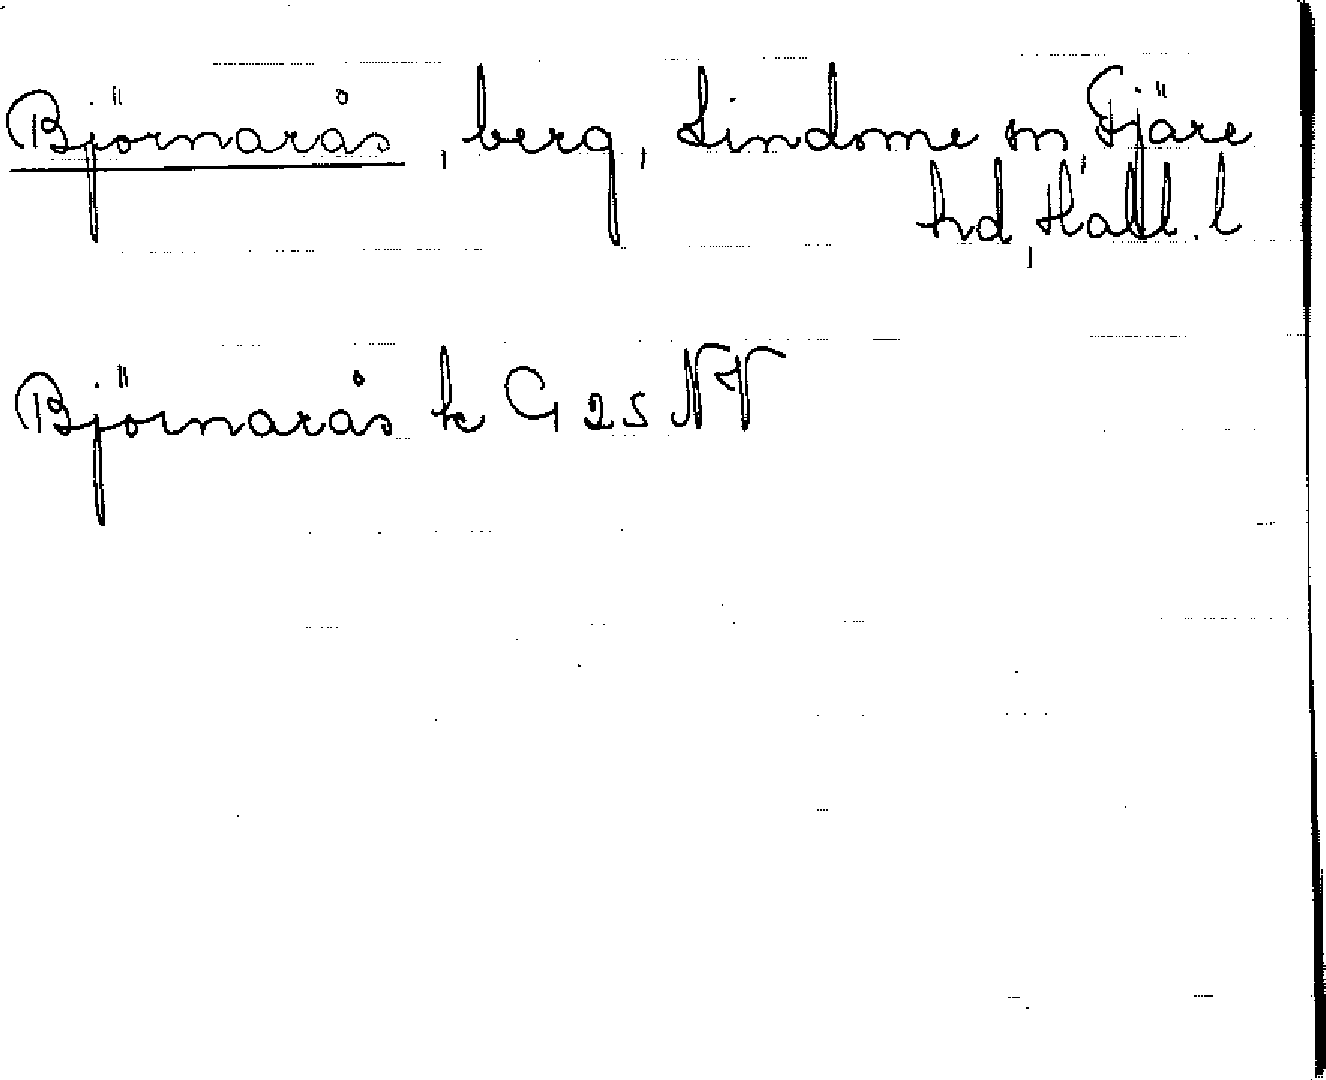 Björnarås, berg, Lindome sn, Fjäre
hd, Hall. l
Björnarås k G 25 NV